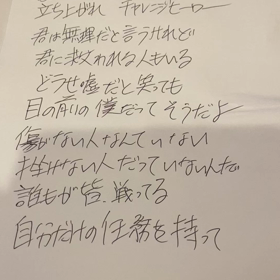 立ち上がれ チャレンジヒーロー
君は無理だと言うけれど
君に救われる人もいる
どうせ嘘だと笑っても
目の前の僕だってそうだよ
傷がない人なんていない
挫けない人だっていないんだ
誰もが皆、戦ってる
自分だけの任務を持って